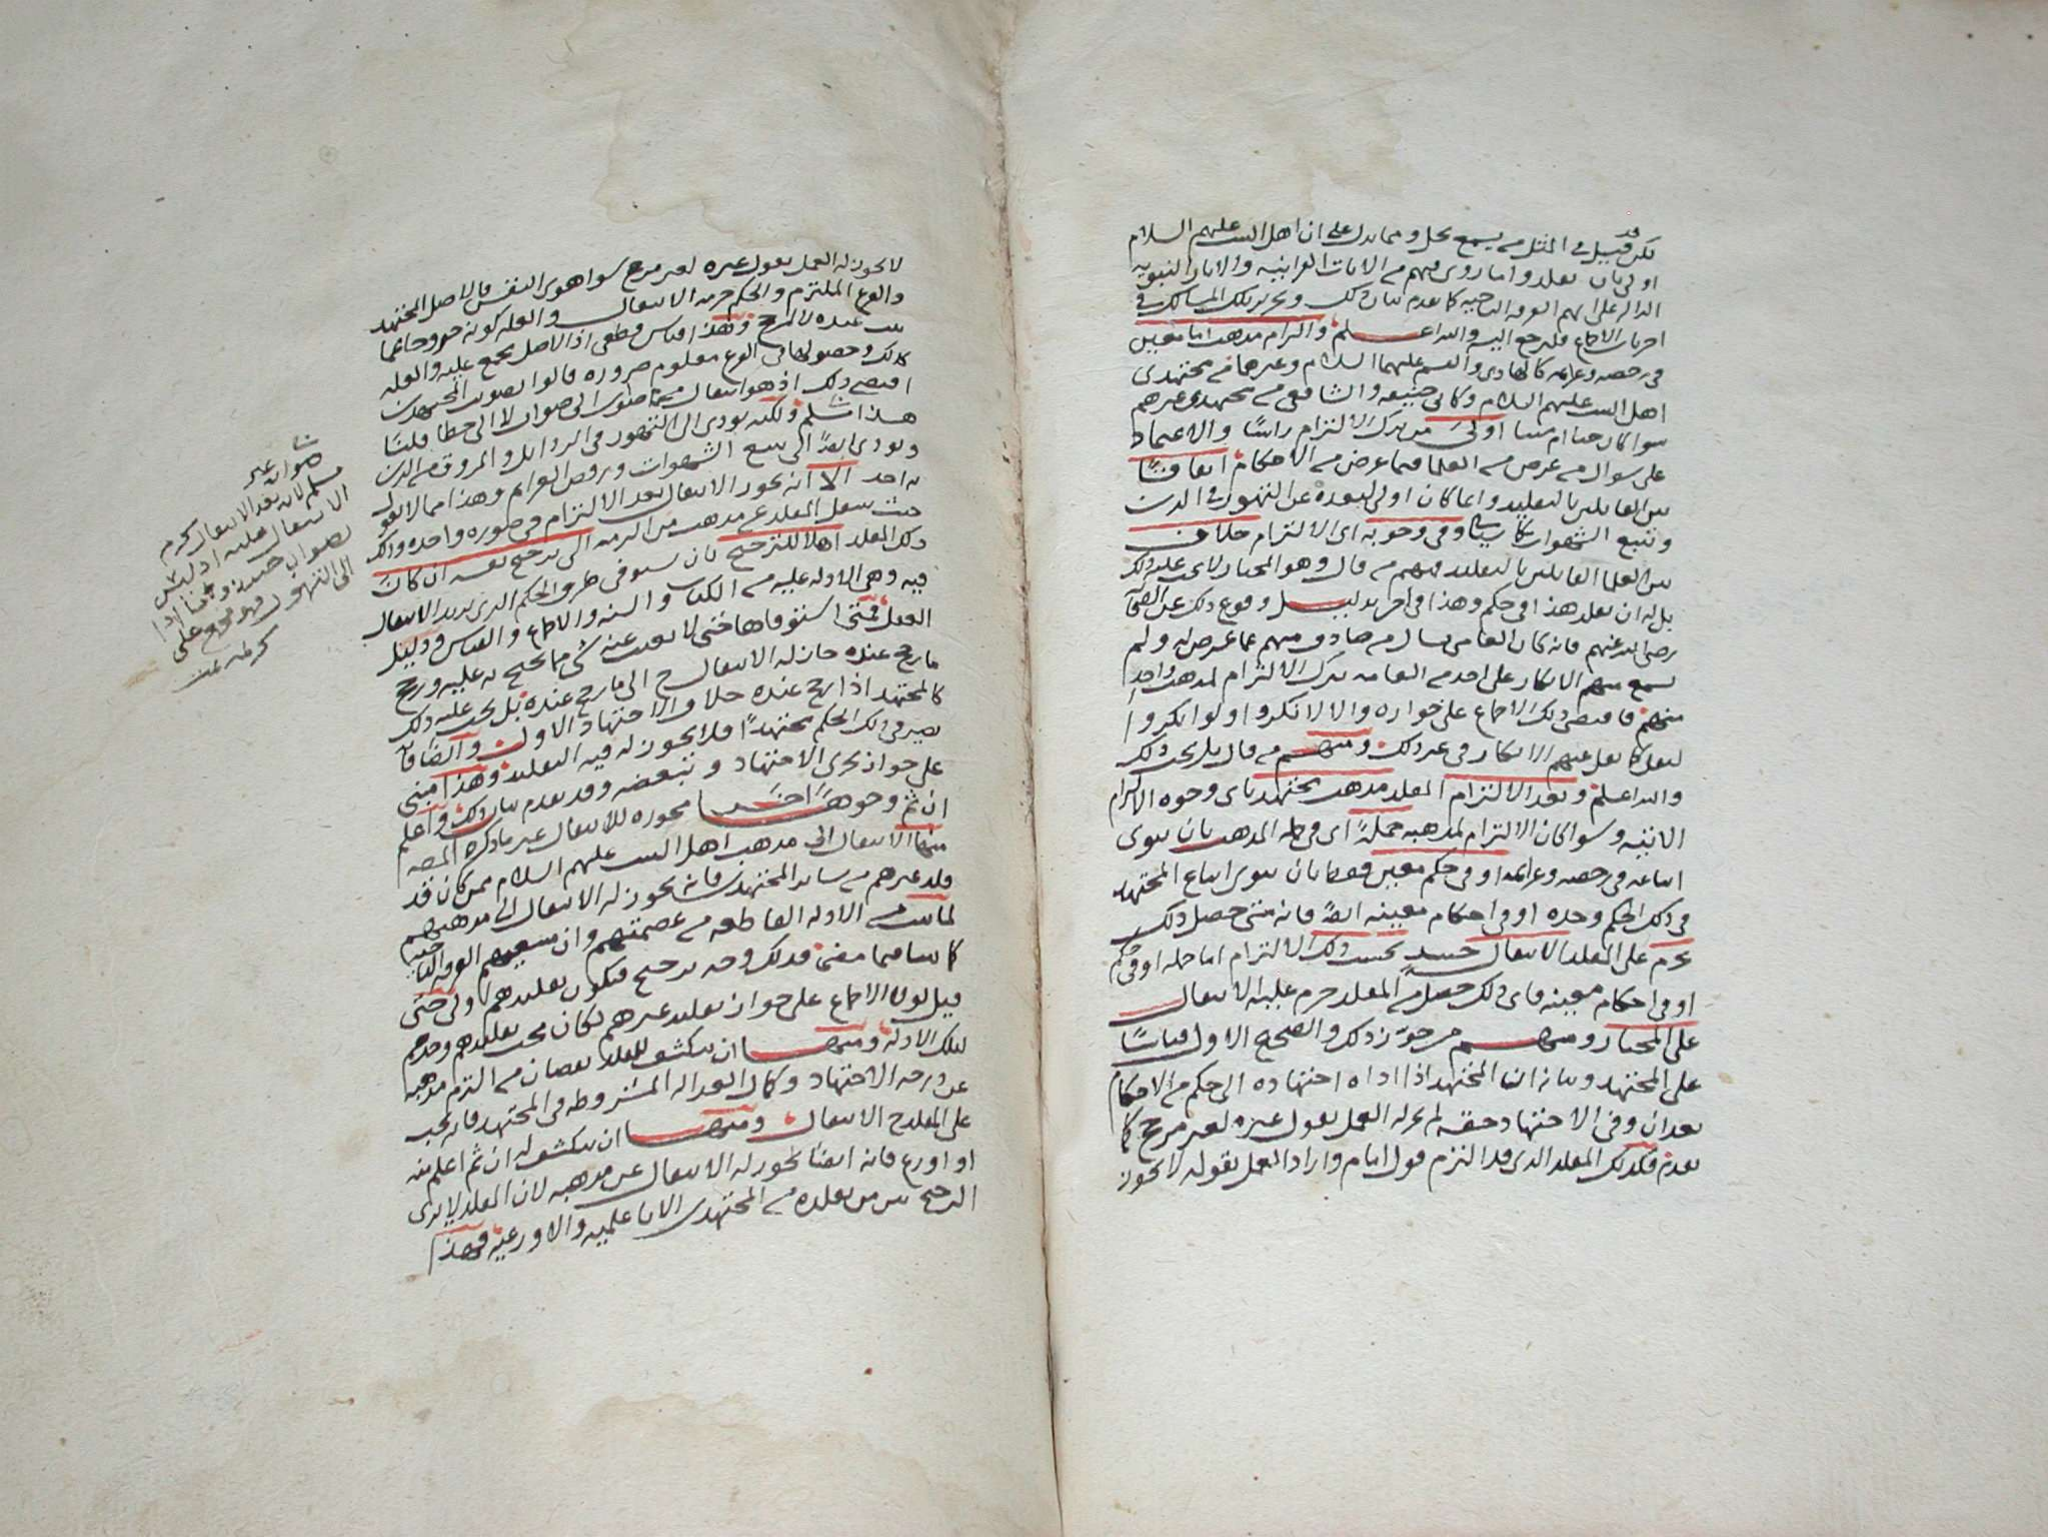 لكن قد قيل في المثل من يسمع يخل ومما يدل على ان اهل البيت عليهم السلام
اولى بان يقلدوا ما روي فيهم من الايات القرانيه والاثار النبويه
الداله على انهم الفرقه الناجيه كما تقدم بيان ذلك وتحرير تلك المسالك في
اخر باب الاجماع فليرجع اليه والله اعلم والتزام مذهب امام معين
في رخصه وعزائمه كالهادي والقسم عليهما السلام وغيرهما من مجتهدي
اهل البيت عليهم السلام وكابي حنيفه والشافعي من مجتهدي غيرهم
سوا كان حيا ام ميتا اولى من ترك الالتزام راسًا والاعتماد
على سوال من عرض من العلما فيما عرض من الاحكام اتفاقًا
بين القايلين بالتقليد وانما كان اولى لبعده عن التهور في الدين
وتتبع الشهوات كما سياتي وفي وجوبه اي الالتزام خلاف
بين العلما القايلين بالتقليد فمنهم من قال وهو المختار لا يجب عليه ذلك
بل له ان يقلد هذا في حكم وهذا في اخر بدليل وقوع ذلك عن الصحابه
رضي الله عنهم فانه كان العامي يسال من صادف منهم عما عرض له ولم
يسمع منهم الانكار على احد من العامه بترك الالتزام لمذهب واحد
منهم فاقتضى ذلك الاجماع على جوازه والا لانكروا ولو انكروا
لنقل كما نقل عنهم الانكار في غير ذلك ومنهم من قال بل يجب ذلك
والله اعلم وبعد الالتزام المقلد مذهب مجتهد باي وجوه الالتزام
الاتيه وسوا كان الالتزام لمذهبه جملةً اي في جملة المذهب بان ينوي
اتباعه في رخصه وعزائمه او في حكم معين فقط بان ينوي اتباع المجتهد
في ذلك الحكم وحده او في احكام معينه ايضًا فانه متى حصل ذلك
يحرم على المقلد الانتقال حينئذ بحسب ذلك الالتزام اما جمله او في حكم
او في احكام معينه فاي ذلك حصل من المقلد حرم عليه الانتقال
على المختار ومنهم من جوز ذلك والصحيح الاول قياسًا
على المجتهد وبيانه ان المجتهد اذا اداه اجتهاده الى حكم من الاحكام
بعد ان وفى الاجتهاد حقه لم يجز له العمل بقول غيره لغير مرجح كما
تقدم فكذلك المقلد الذي قد التزم قول امام واراد العمل بقوله لا يجوز
لا يجوز له العمل بقول غيره لغير مرجح سوا هوى النفس فالاصل المجتهد
والفرع الملتزم والحكم حرمة الانتقال والعله كونه خروجا عما
ثبت عنده لا لمرجح وهذا قياس قطعي اذ الاصل مجمع عليه والعله
كذلك وحصولها في الفرع معلوم ضروره قالوا تصويب المجتهدين
اقتضى ذلك اذ هو انتقال من صواب الى صواب لا الى خطا قلنا
هذا مسلم ولكنه يودي الى التهور في الرذايل والمروق من الدين
ويودي ايضًا الى تتبع الشهوات ورفض العزائم وهذا مما لا يقول
به احد الا انه يجوز الانتقال بعد الالتزام في صوره واحده وذلك
حيث ينتقل المقلد عن مذهب من التزمه الى ترجيح نفسه ان كان
ذلك المقلد اهلًا للترجيح بان يستوفي طرق الحكم الذي يريد الانتقال
فيه وهي الادله عليه من الكتاب والسنه والاجماع والقياس ودليل
العقل فمتى استوفاها حتى لا يغيب عنه شي مما يحتج به عليه ورجح
ما رجح عنده جاز له الانتقال ح الى ما رجح عنده بل يجب عليه ذلك
كالمجتهد اذا رجح عنده خلاف الاجتهاد الاول والضا
يصير في ذلك الحكم مجتهدًا فلا يجوز له فيه التقليد وهذا مبني
على جواز تجزي الاجتهاد وتبعضه وقد تقدم بيان ذلك واعلم
ان ثم وجوهًا اخر مجوزه للانتقال غير ما ذكره المصنف
منها الانتقال الى مذهب اهل البيت عليهم السلام ممن كان قد
قلد غيرهم من ساير المجتهدين فانه يجوز له الانتقال الى مذهبهم
لما ثبت من الادله القاطعه من عصمتهم وان متبعيهم الفرقه الناجيه
كما بينا فيما مضى فذلك وجه ترجيح فيكون تقليدهم اولى حتى
قيل لولا الاجماع على جواز تقليد غيرهم لكان يجب تقليدهم وحدهم
لتلك الادله ومنها ان ينكشف للمقلد نقصان من التزم مذهبه
عن درجة الاجتهاد وكمال العداله المشروطه في المجتهد فانه يجب
على المقلد ح الانتقال ومنها ان ينكشف له ان ثم اعلم منه
او اورع فانه ايضًا يجوز له الانتقال عن مذهبه لان المقلد لا يرى
الترجيح بين من يقلده من المجتهدين الا بالاعلميه والاورعيه فهذا
صوابه غير
مسلم لان بعد الانتقال يحرم
الانتقال عليه اذ ليس
بصواب حينئذ
الى التهور فهو مجمع على